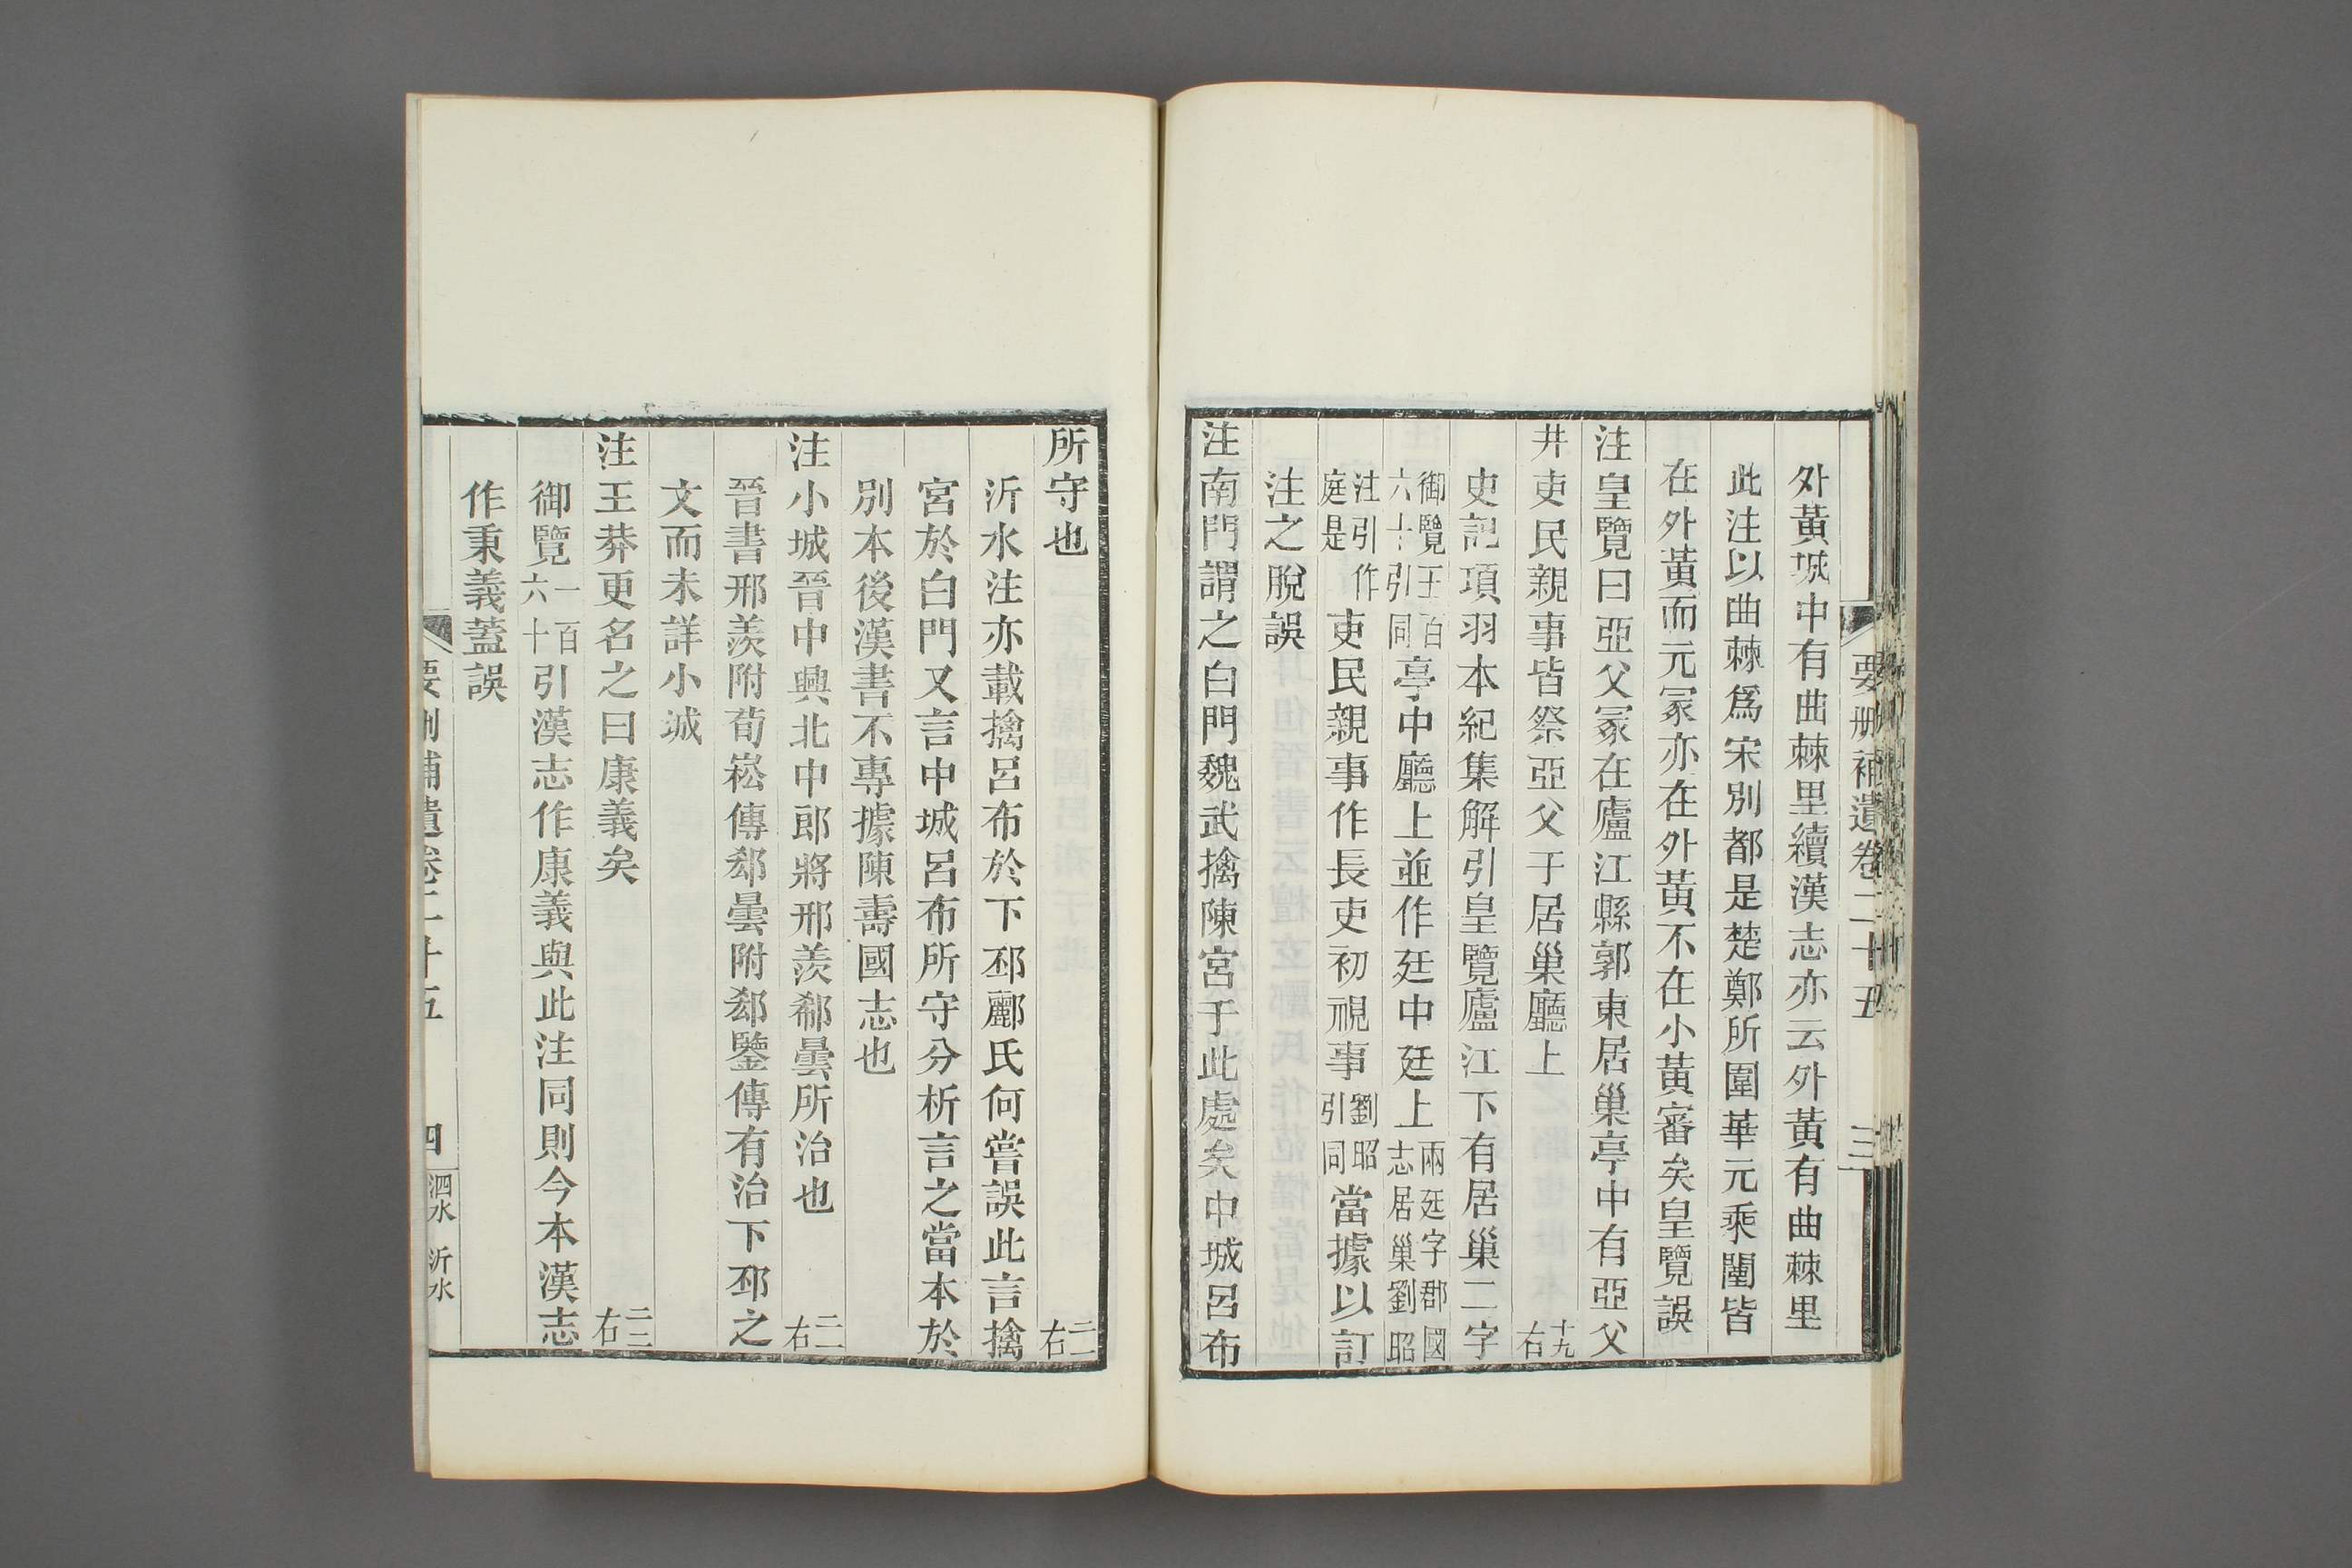 要刪補遺卷二十五
三
外黃城中有曲棘里續漢志亦云外黃有曲棘里
此注以曲棘爲宋別都是楚鄭所圍華元乘闉皆
在外黃而元冢亦在外黃不在小黃審矣皇覽誤
注皇覽曰亞父冢在廬江縣郭東居巢亭中有亞父
井吏民親事皆祭亞父于居巢廳上十九右
史記項羽本紀集解引皇覽廬江下有居巢二字
御覽五百六十引同亭中廳上並作廷中廷上兩廷字郡國志居巢劉昭
注引作庭是吏民親事作長吏初視事劉昭引同當據以訂
注之脫誤
注南門謂之白門魏武擒陳宮于此處矣中城呂布
所守也二一右
沂水注亦載擒呂布於下邳酈氏何嘗誤此言擒
宮於白門又言中城呂布所守分析言之當本於
別本後漢書不專據陳壽國志也
注小城晉中興北中郎將邢羨郗曇所治也二二右
晉書邢羨附荀崧傳郄曇附郄鑒傳有治下邳之
文而未詳小城
注王莽更名之曰康義矣二三右
御覽一百六十引漢志作康義與此注同則今本漢志
作秉義蓋誤
要刪補遺卷二十五
四
泗水 沂水